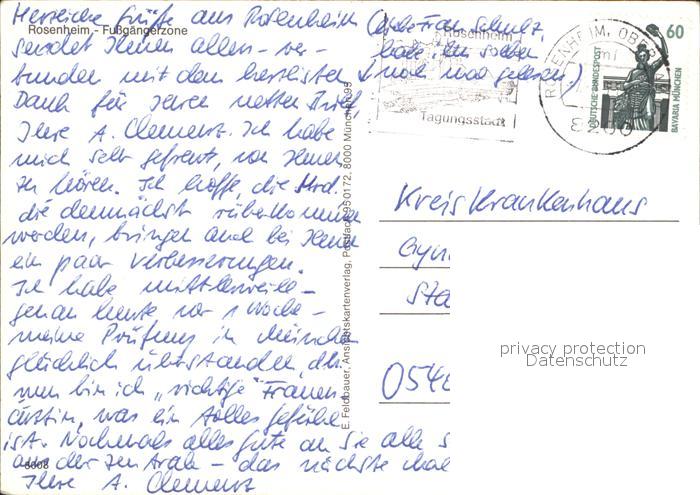 Herzliche Grüße aus Rosenheim
(Liebe Frau Schulz,
Rosenheim - Fußgängerzone
sendet Ihnen allen - ver-
habe ihn soeben
bunden mit dem herzlichsten
noch mal gelesen!)
Dank für Ihren netten Brief,
Ihre A. Clemens. Ich habe
mich sehr gefreut, von Ihnen
zu hören. Ich hoffe, die
die demnächst rüberkommen
werden, bringen auch bei Ihnen
ein paar Verbesserungen.
Ich habe mittlerweile -
genau heute vor 1 Woche -
meine Prüfung in München
glücklich überstanden, d.h.
nun bin ich "richtige" Frauen-
ärztin, was ein tolles Gefühl
ist. Nochmals alles Gute an Sie alle
aus der Zentrale - das nächste Mal
Ihre A. Clemens
8008
E. Feldbauer, Ansichtskartenverlag, Postfach 950172, 8000 München 95
Rosenheim
Tagungsstadt
ROSENHEIM, OBERBAY
ml
8200
60
DEUTSCHE BUNDESPOST
BAVARIA MÜNCHEN
Kreiskrankenhaus
Gyn
Sta
054
privacy protection
Datenschutz